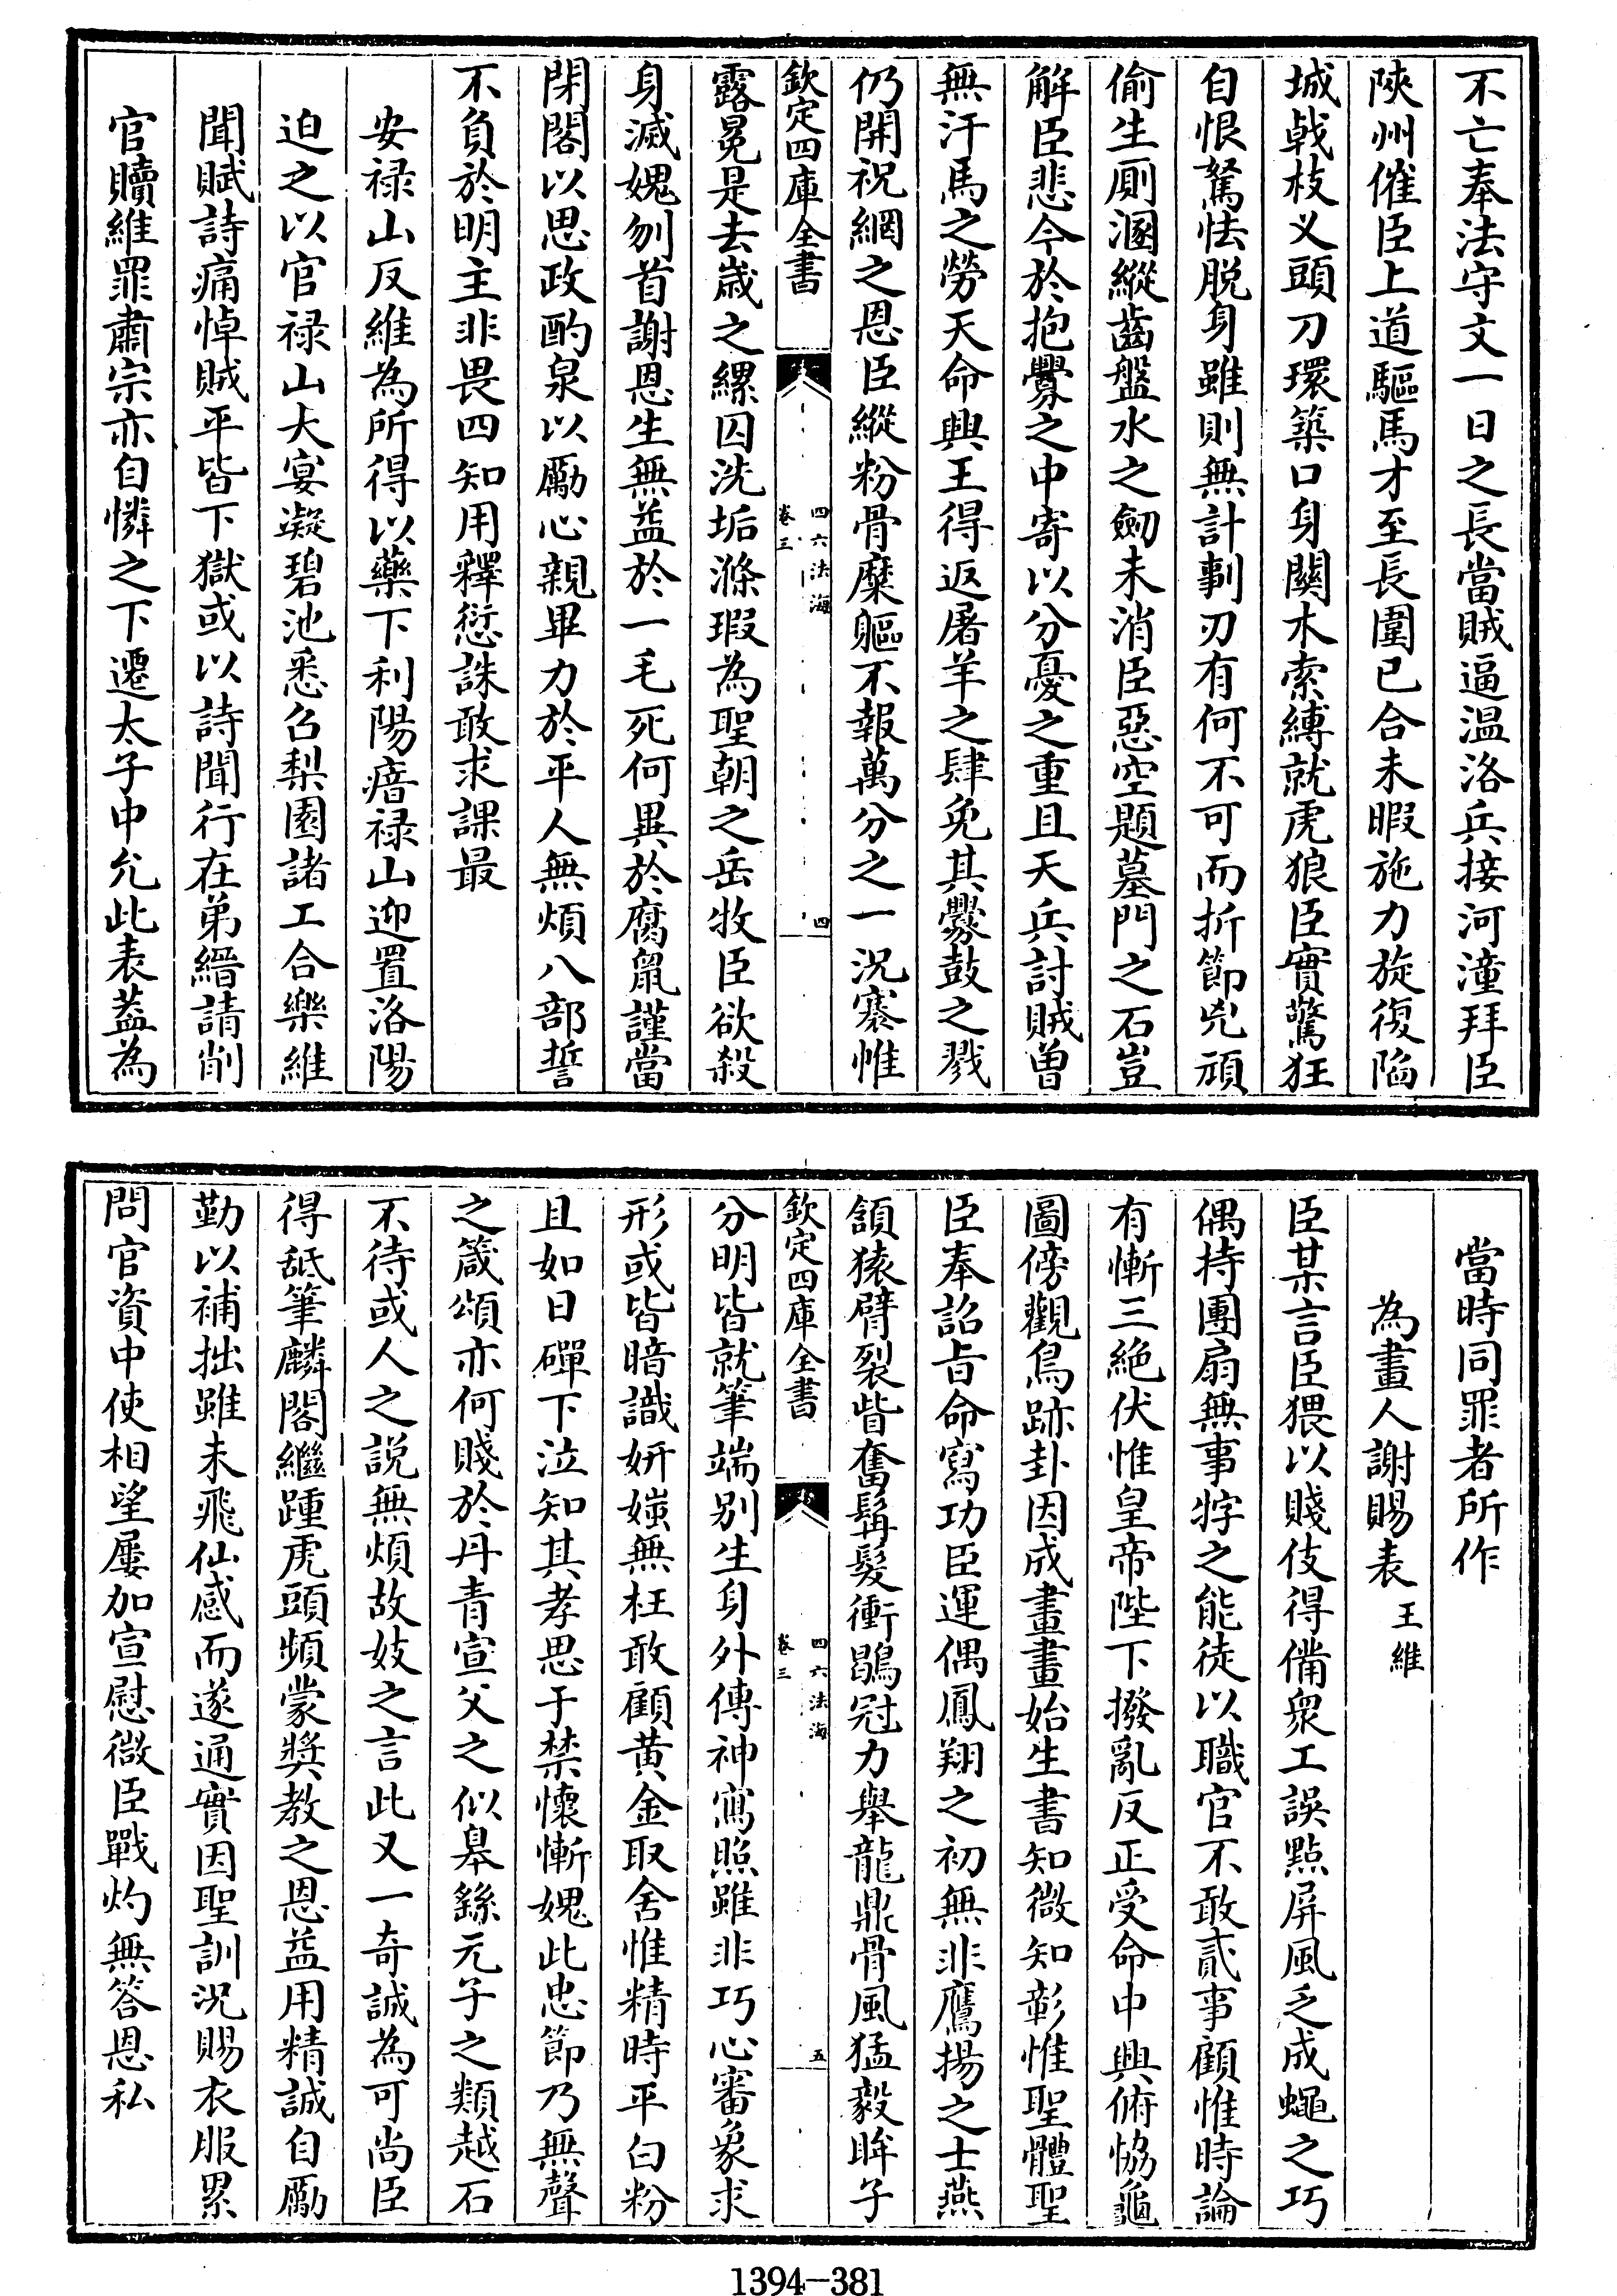 不亡奉法守文一日之長當賊逼温洛兵接河潼拜臣
陜州催臣上道驅馬才至長圍已合未暇施力旋復陥
城戟枝义頭刀環築口身關木索縛就虎狼臣實驚狂
自恨駑怯脱身雖則無計剚刃有何不可而折節兇頑
偷生厠溷縱齒盤水之劒未消臣惡空題墓門之石豈
解臣悲今於抱釁之中寄以分憂之重且天兵討賊曽
無汗馬之勞天命興王得返屠羊之肆免其釁鼓之戮
仍開祝網之恩臣縱粉骨糜軀不報萬分之一況褰帷
欽定四庫全書
四六法海
卷三
四
露冕是去歲之縲囚洗垢滌瑕為聖朝之岳牧臣欲殺
身滅媿刎首謝恩生無益於一毛死何異於腐鼠謹當
閉閤以思政酌泉以勵心親畢力於平人無煩八部誓
不負於明主非畏四知用釋愆誅敢求課最
安禄山反維為所得以藥下利陽瘖禄山迎置洛陽
迫之以官禄山大宴凝碧池悉召梨園諸工合樂維
聞賦詩痛悼賊平皆下獄或以詩聞行在弟縉請削
官贖維罪肅宗亦自憐之下遷太子中允此表葢為
當時同罪者所作
為畫人謝賜表 王維
臣某言臣猥以賤伎得備衆工誤點屏風乏成蠅之巧
偶持團扇無事牸之能徒以職官不敢貳事顧惟時論
有慚三絶伏惟皇帝陛下撥亂反正受命中興俯恊龜
圖傍觀鳥跡卦因成畫畫始生書知微知彰惟聖體聖
臣奉詔㫖命寫功臣運偶鳳翔之初無非鷹揚之士燕
頷猿臂裂眥奮髯髮衝鶡冠力舉龍鼎骨風猛毅眸子
欽定四庫全書
四六法海
卷三
五
分明皆就筆端别生身外傳神寫照雖非巧心審象求
形或皆暗識妍媸無枉敢顧黄金取舍惟精時平白粉
且如日磾下泣知其孝思于禁懷慚媿此忠節乃無聲
之箴頌亦何賤於丹青宣父之似臯繇元子之類越石
不待或人之説無煩故妓之言此又一奇誠為可尚臣
得舐筆麟閣繼踵虎頭頻蒙奬教之恩益用精誠自勵
勤以補拙雖未飛仙感而遂通實因聖訓況賜衣服累
問官資中使相望屢加宣慰微臣戰灼無答恩私
1394-381